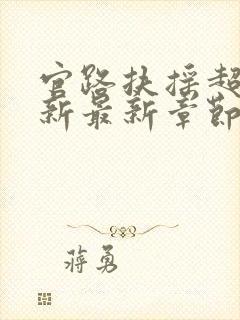 官路扶摇超
新最新章节
蒋勇